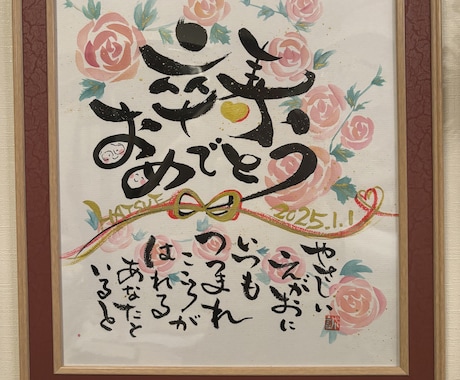 卒寿
おめでとう
HATSUE 2025.1.1
やさしい
えがおに
いつも
つつまれ
こころが
はれる
あなたと
いると